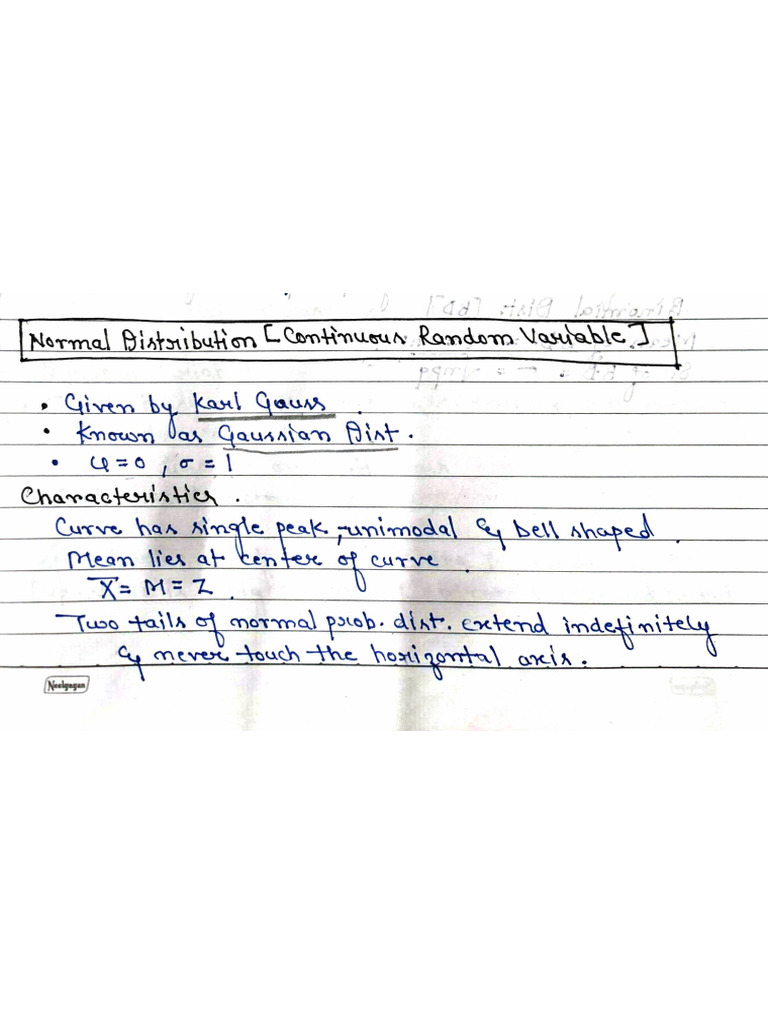 Normal Distribution [Continuous Random Variable]
• Given by Karl Gauss.
• Known as Gaussian Dist.
• μ=0, σ=1
Characteristics.
Curve has single peak, unimodal & bell shaped.
Mean lies at center of curve.
X̅= M = Z.
Two tails of normal prob. dist. extend indefinitely
& never touch the horizontal axis.
Neelgagan